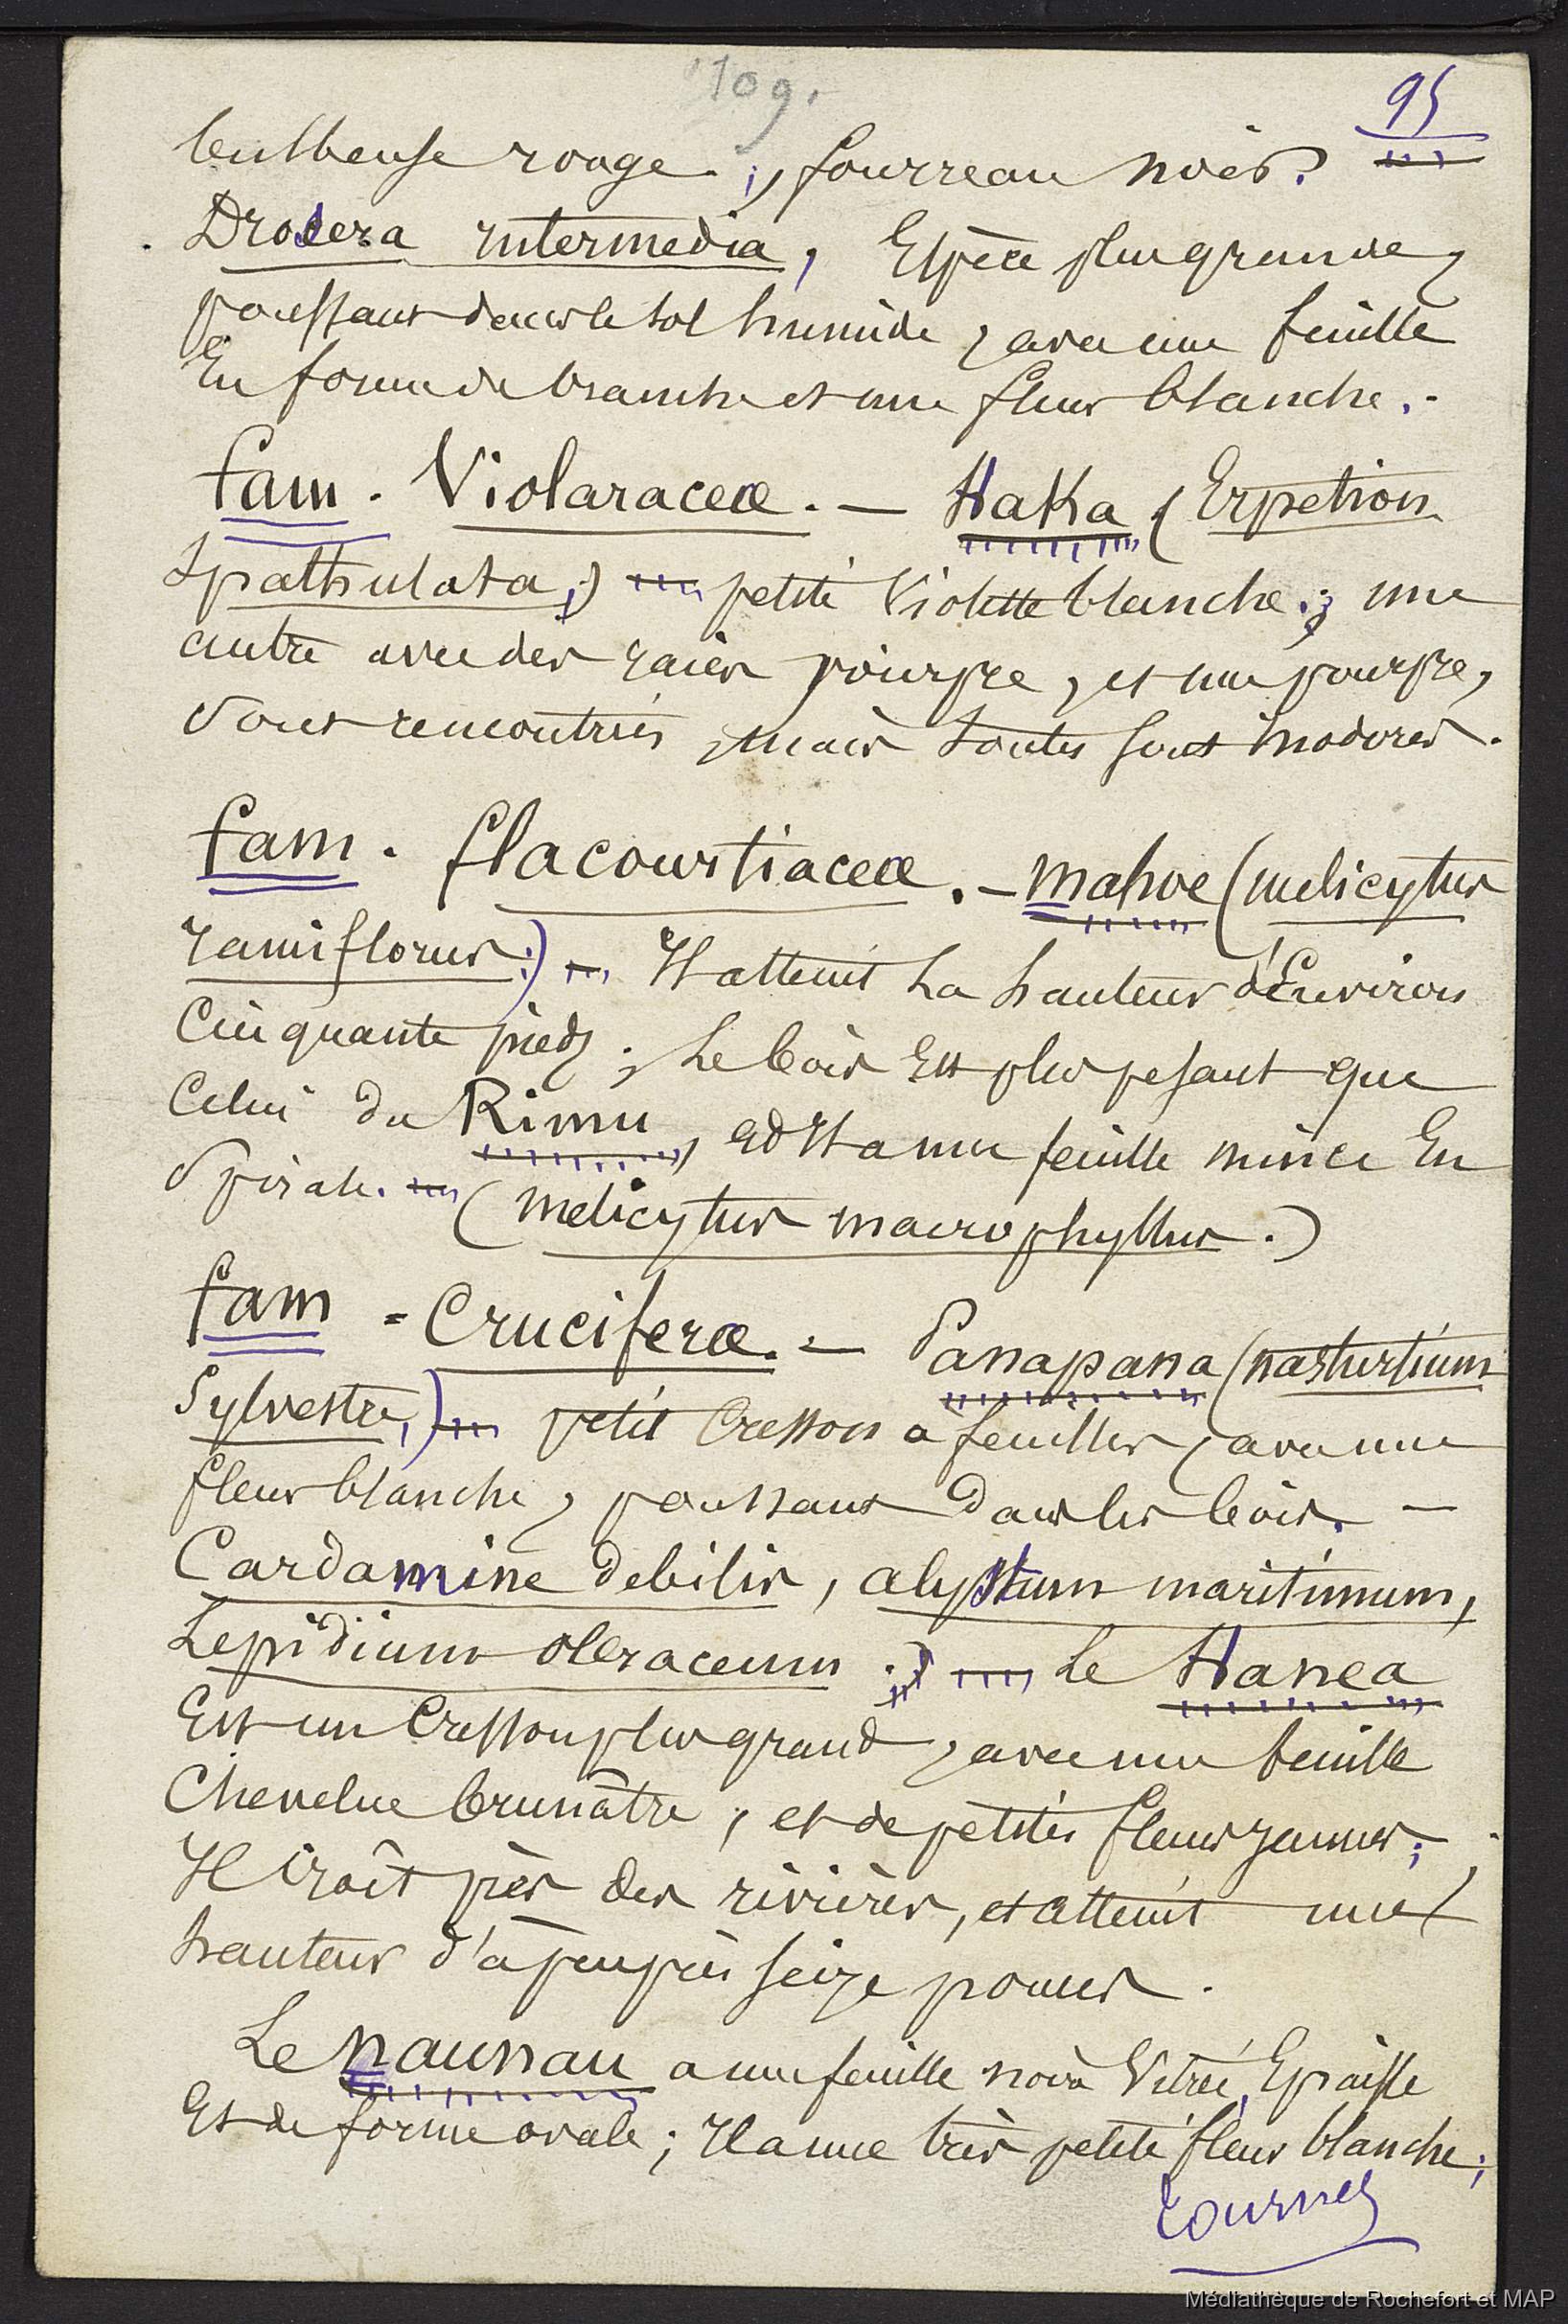 109.
95
bulbeuse rouge ; fourreau noir.
Drosera intermedia, Espèce plus grande,
poussant dans le sol humide, avec une feuille
En forme de branche et une fleur blanche.-
fam. Violaraceæ. — Haka (Erpetion
Spathulata;) — petite Violette blanche ; une
autre avec des raies pourpre, et une pourpre,
sont rencontrées, mais toutes sont inodores.
fam. flacourtiaceæ. — mahoe (melicytus
ramiflorus;) — Il atteint la hauteur d'Environ
Cinquante pieds ; Le bois Est plus pesant que
Celui du Rimu, et Il a une feuille mince En
Spirale. — (melicytus macrophyllus.)
fam - Cruciferæ. — Panapana (nasturtium
Sylvestre,) — petit Cresson a feuilles, avec une
fleur blanche, poussant dans les bois. —
Cardamine debilis, alyssum maritimum,
Lepidium oleraceum .) — Le Hanea
Est un Cresson plus grand, avec une feuille
Chevelue brunâtre, et de petites fleurs jaunes ;
Il croît près des rivières, et atteint une
hauteur d'à peu près seize pouces.
Le naunau a une feuille noir Vitrée, Epaisse
Et de forme ovale ; Il a une très petite fleur blanche ;
tournez
Médiathèque de Rochefort et MAP